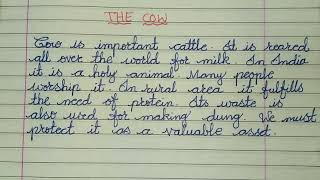 THE COW
Cow is important cattle. It is reared
all over the world for milk. In India
it is a holy animal. Many people
worship it. In rural area it fulfills
the need of protein. Its waste is
also used for making dung. We must
protect it as a valuable asset.